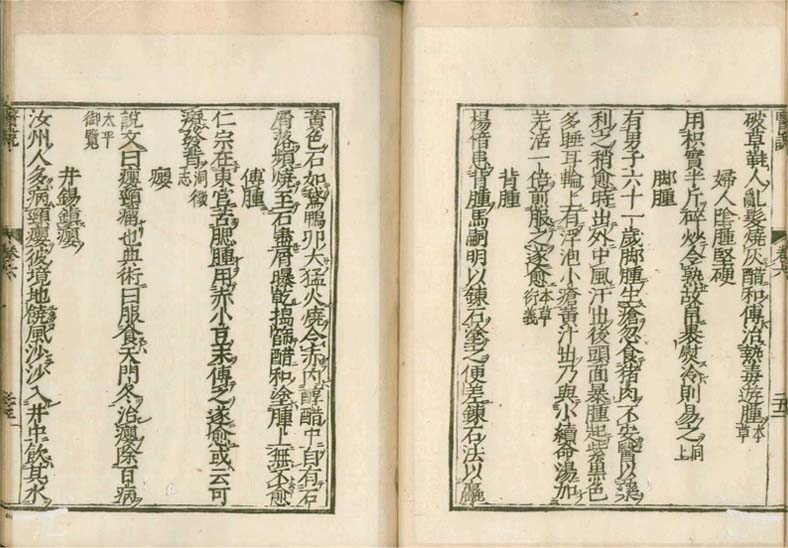 醫說 卷六
破草鞋人亂髮燒灰醋和傅治熱毒遊腫本草
婦人陰腫堅硬
用枳實半斤碎炒令熟故帛裹熨冷則易之同上
脚腫
有男子六十一歲脚腫生瘡忽食猪肉不安醫以藥
利之稍愈時出外中風汗出後頭面暴腫起紫黑色
多睡耳輪上有浮泡小瘡黃汁出乃與小續命湯加
羌活一倍煎服之遂愈本草衍義
背腫
楊愔患背腫馬嗣明以鍊石塗之便差鍊石法以麤
黃色石如鵞鴨卵大猛火燒令赤內醇醋中自有石
屑落頻燒至石盡屑曝乾搗篩醋和塗腫上無不愈
傅腫
仁宗在東宮苦腮腫用赤小豆末傅之遂愈或云可
發背洞微志
癭
說文曰癭頸瘤也典術曰服食天門冬治癭除百病
太平御覽
井錫鎮癭
汝州人多病頸癭彼境地饒風沙沙入井中飲其水
醫說 卷六